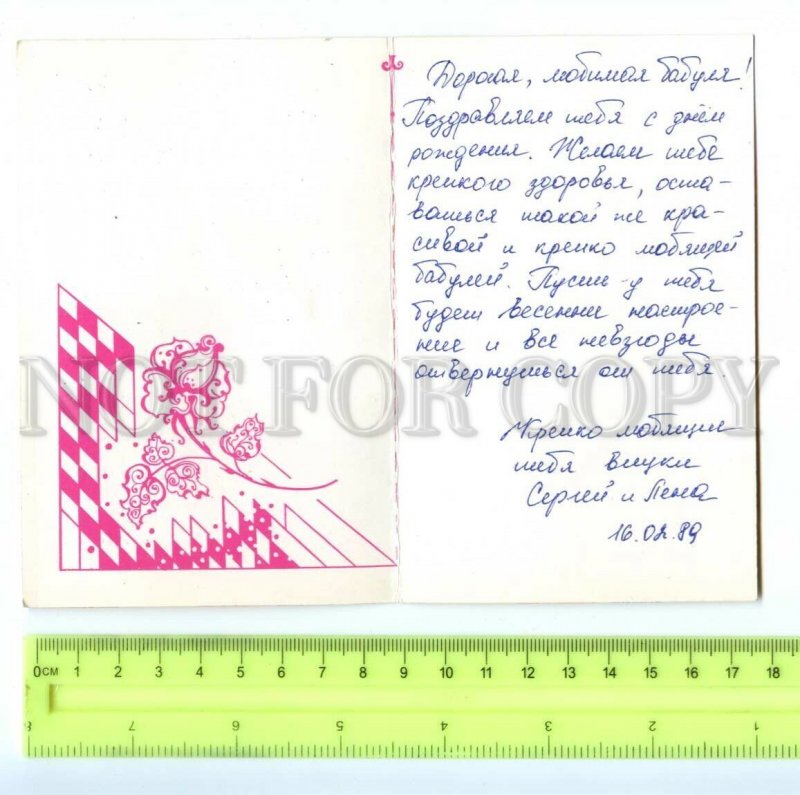 Дорогая, любимая бабуля!
Поздравляем тебя с днём
рождения. Желаем тебе
крепкого здоровья, оста-
ваться такой же кра-
сивой и крепко любящей
бабулей. Пусть у тебя
будет весеннее настрое-
ние и все невзгоды
отвернуться от тебя.
Крепко любящие
тебя внуки
Сергей и Лена
16.02.89
NOT FOR COPY
0см 1 2 3 4 5 6 7 8 9 10 11 12 13 14 15 16 17 18
8 7 6 5 4 3 2 1